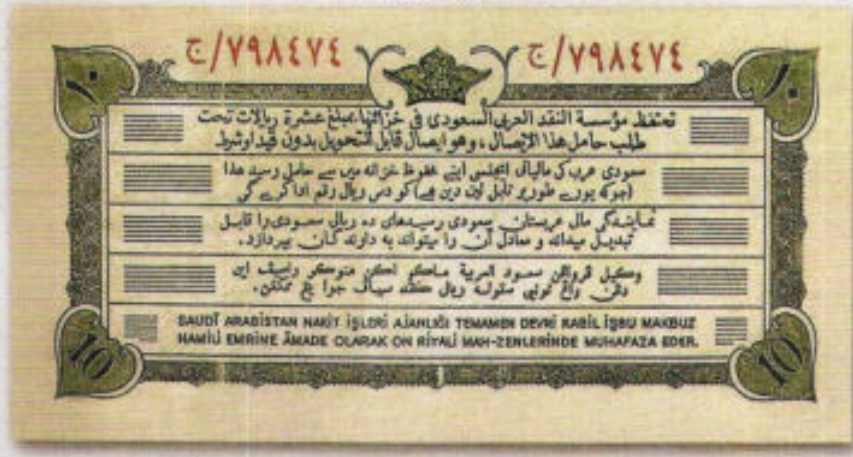 ٧٩٨٤٧٤/ج ٧٩٨٤٧٤/ج
١٠ ١٠
تحتفظ مؤسسة النقد العربي السعودي في خزائنها بمبلغ عشرة ريالات تحت
طلب حامل هذا الإيصال ، وهو إيصال قابل للتحويل بدون قيد أو شرط
سعودی عرب کی مالیاتی ایجنسی اپنے محفوظ خزانه میں سے حامل رسید هذا
(جو که پورے طور پر قابل لین دین هے) کو دس ریال رقم ادا کرے گی
نمایندگی مال عربستان سعودی رسیدهای ده ریال سعودی را قابل
تبدیل میداند و معادل آن را میتواند به دارندگان بپردازد.
وكيل سعود العربية اين
ريال
SAUDİ ARABİSTAN NAKİT İŞLERİ AJANLIĞI TEMAMEN DEVRİ KABİL İŞBU MAKBUZ
HAMİLİ EMRİNE ÂMADE OLARAK ON RİYALİ MAH-ZENLERİNDE MUHAFAZA EDER.
10 10